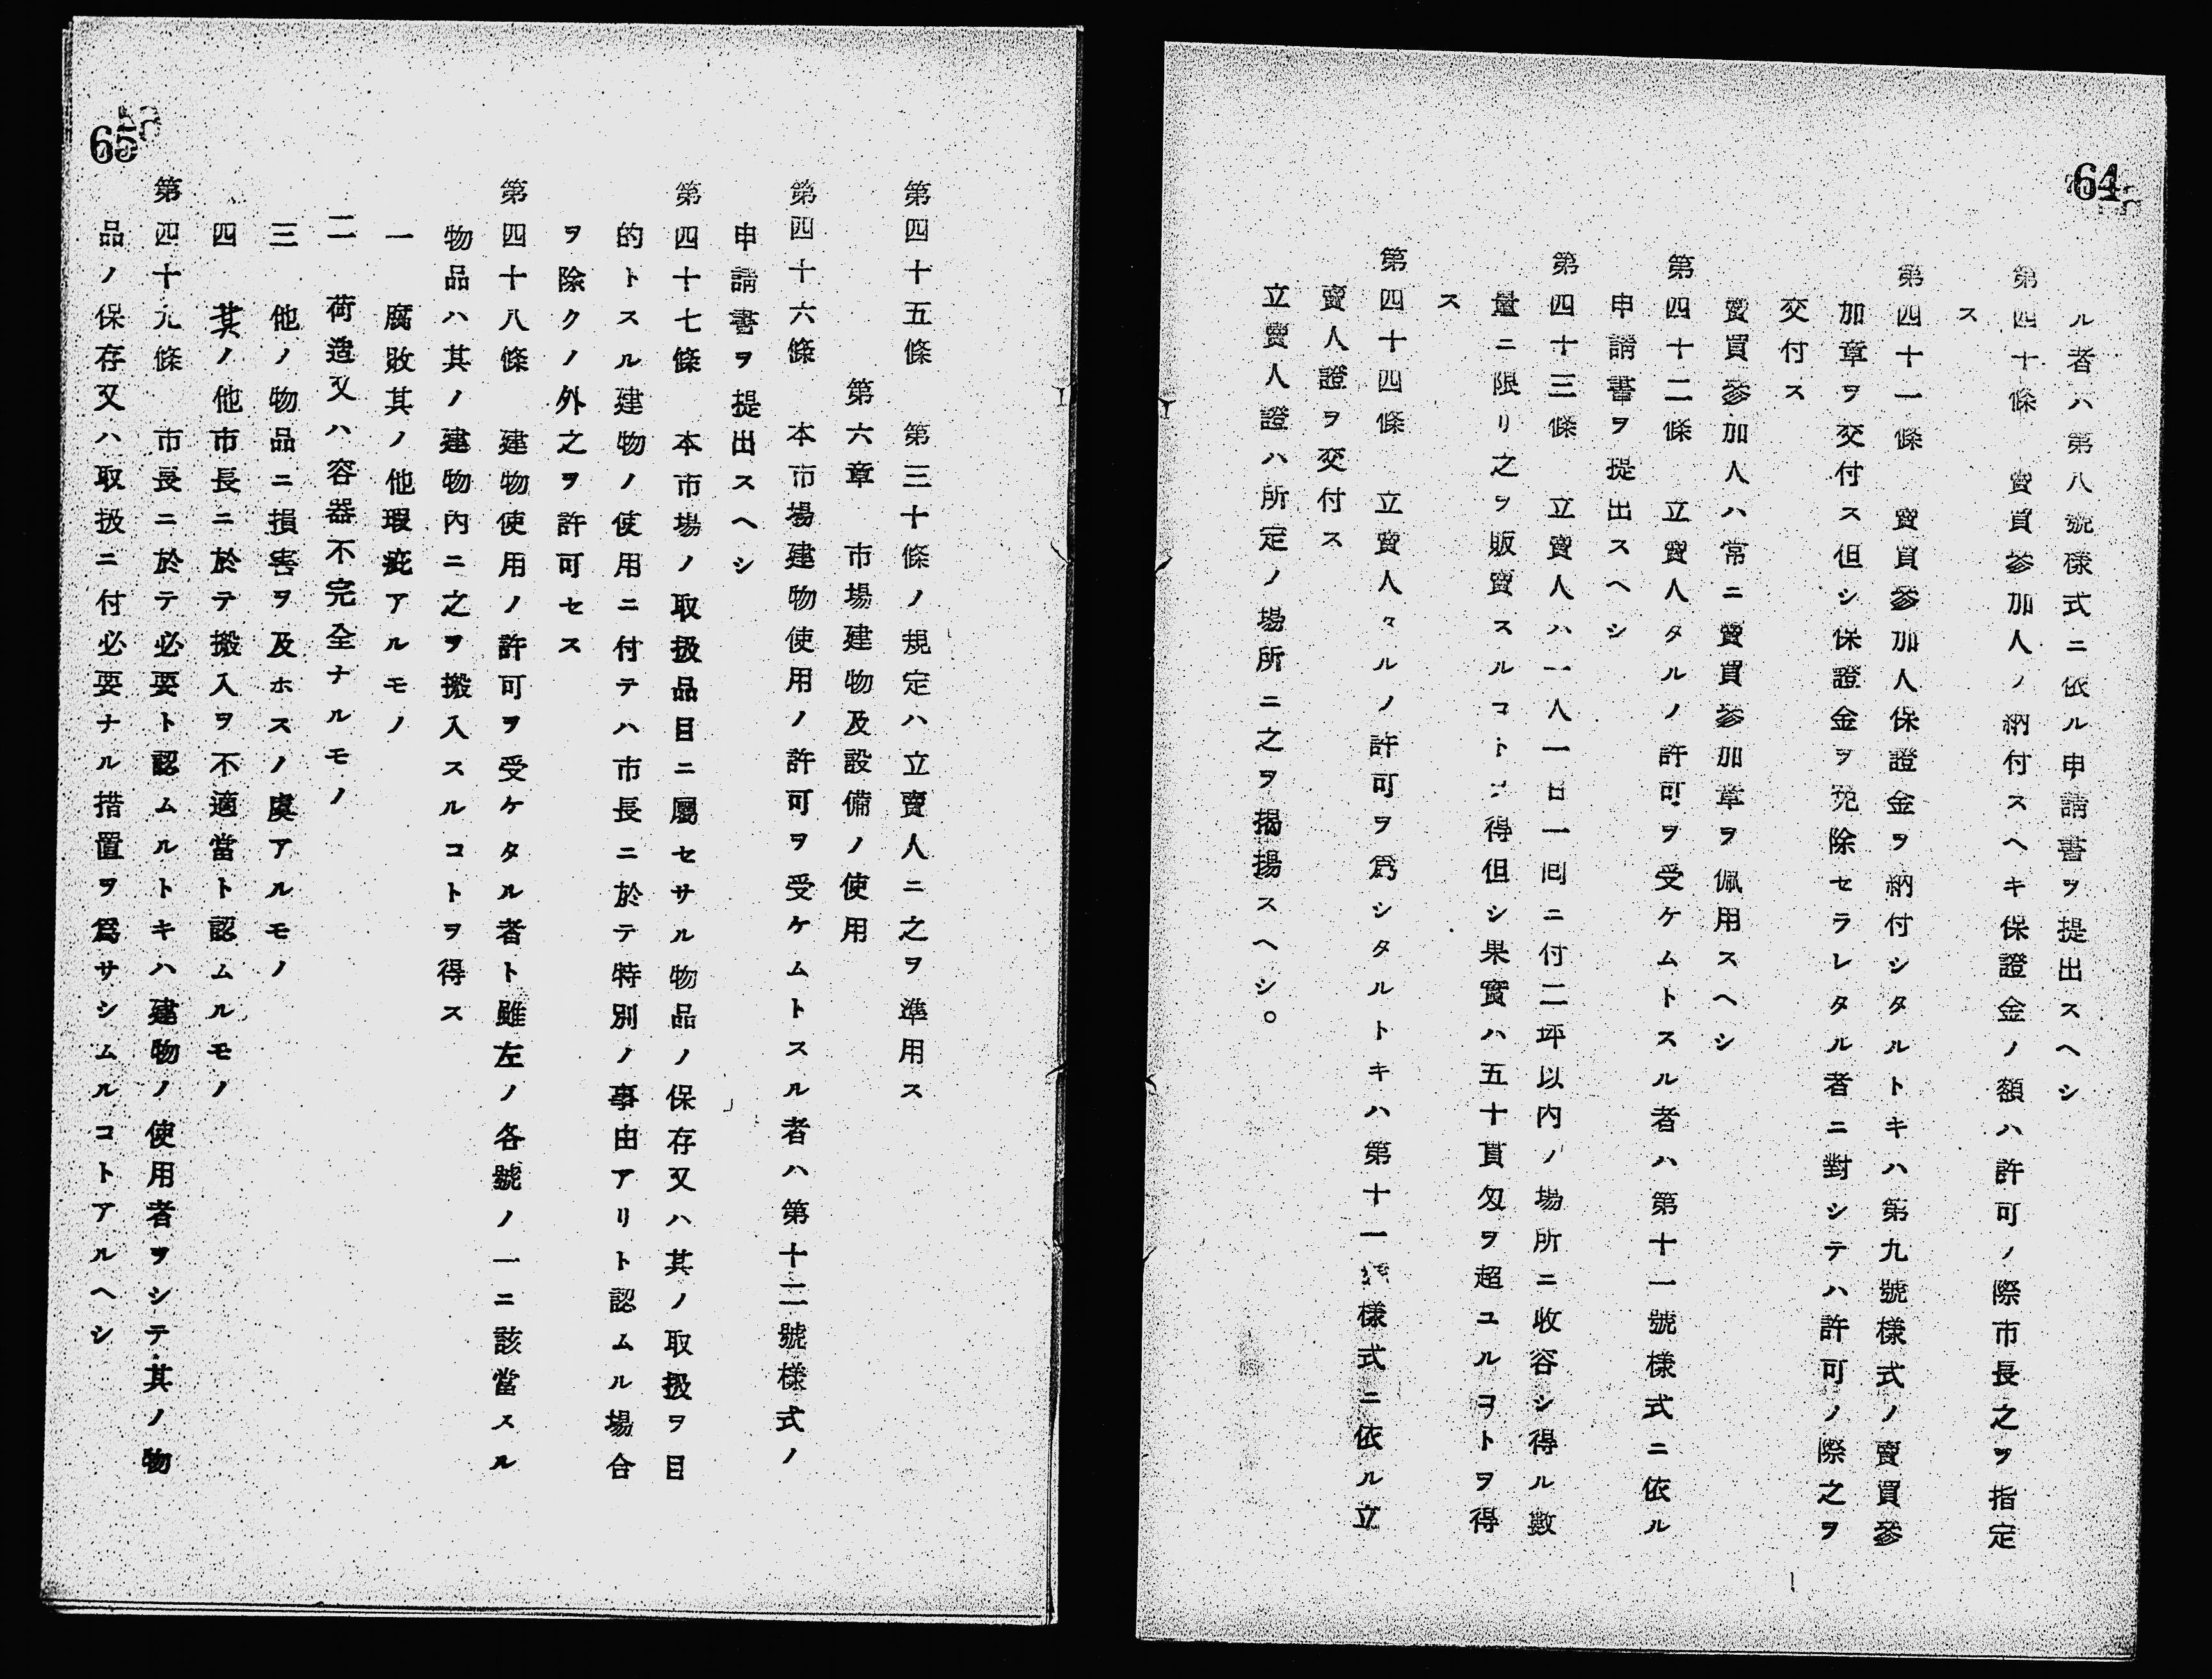 64
ル者ハ第八號樣式ニ依ル申請書ヲ提出スヘシ
第四十條　賣買參加人ノ納付スヘキ保證金ノ額ハ許可ノ際市長之ヲ指定
ス
第四十一條　賣買參加人保證金ヲ納付シタルトキハ第九號樣式ノ賣買參
加章ヲ交付ス但シ保證金ヲ免除セラレタル者ニ對シテハ許可ノ際之ヲ
交付ス
賣買參加人ハ常ニ賣買參加章ヲ佩用スヘシ
第四十二條　立賣人タルノ許可ヲ受ケムトスル者ハ第十一號樣式ニ依ル
申請書ヲ提出スヘシ
第四十三條　立賣人ハ一人一日一囘ニ付二坪以内ノ場所ニ收容シ得ル數
量ニ限リ之ヲ販賣スルコトヲ得但シ果實ハ五十貫匁ヲ超ユルコトヲ得
ス
第四十四條　立賣人タルノ許可ヲ爲シタルトキハ第十一號樣式ニ依ル立
賣人證ヲ交付ス
立賣人證ハ所定ノ場所ニ之ヲ揭揚スヘシ。
65
第四十五條　第三十條ノ規定ハ立賣人ニ之ヲ準用ス
第六章　市場建物及設備ノ使用
第四十六條　本市場建物使用ノ許可ヲ受ケムトスル者ハ第十二號樣式ノ
申請書ヲ提出スヘシ
第四十七條　本市場ノ取扱品目ニ屬セサル物品ノ保存又ハ其ノ取扱ヲ目
的トスル建物ノ使用ニ付テハ市長ニ於テ特別ノ事由アリト認ムル場合
ヲ除クノ外之ヲ許可セス
第四十八條　建物使用ノ許可ヲ受ケタル者ト雖左ノ各號ノ一ニ該當スル
物品ハ其ノ建物内ニ之ヲ搬入スルコトヲ得ス
一　腐敗其ノ他瑕疵アルモノ
二　荷造又ハ容器不完全ナルモノ
三　他ノ物品ニ損害ヲ及ホスノ虞アルモノ
四　其ノ他市長ニ於テ搬入ヲ不適當ト認ムルモノ
第四十九條　市長ニ於テ必要ト認ムルトキハ建物ノ使用者ヲシテ其ノ物
品ノ保存又ハ取扱ニ付必要ナル措置ヲ爲サシムルコトアルヘシ